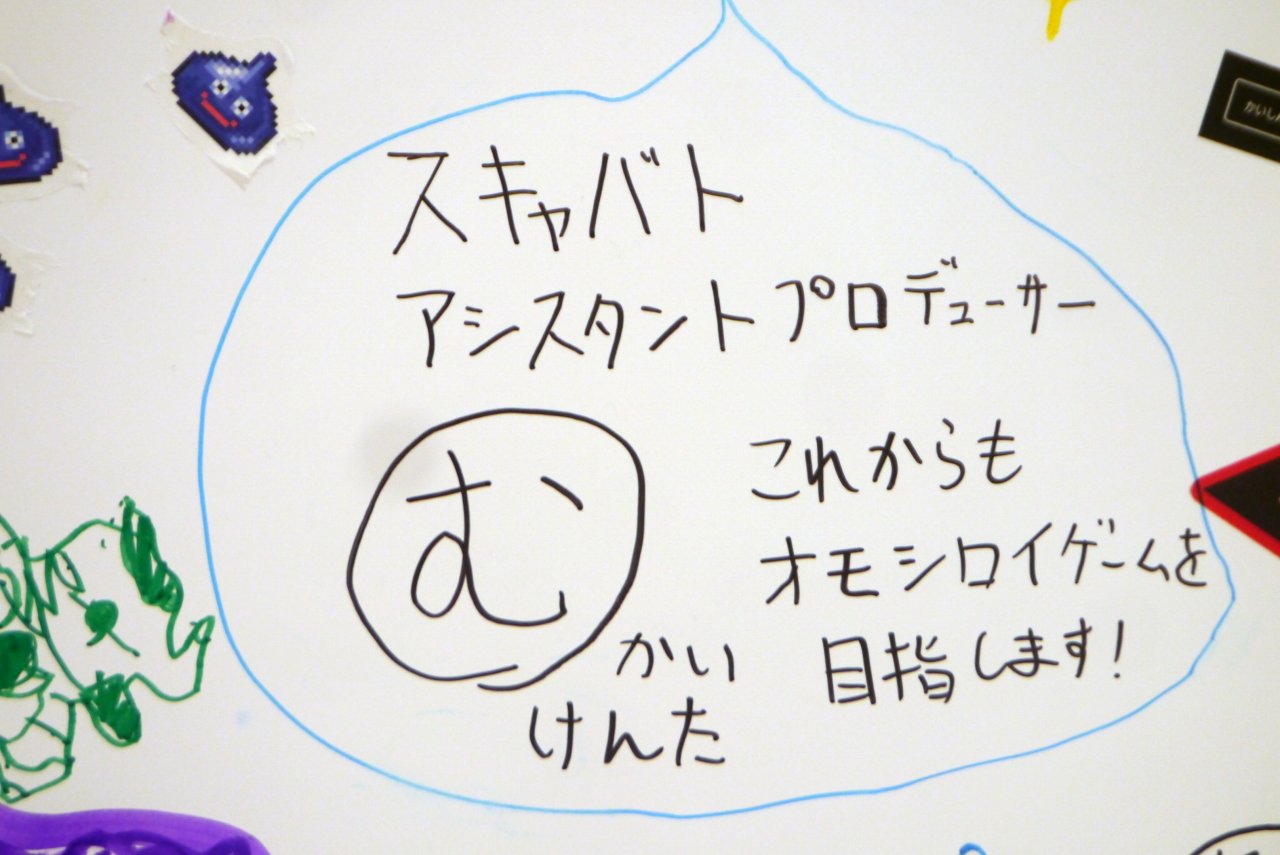 スキャバト
アシスタントプロデューサー
む
かい
けんた
これからも
オモシロイゲームを
目指します!
かいしん